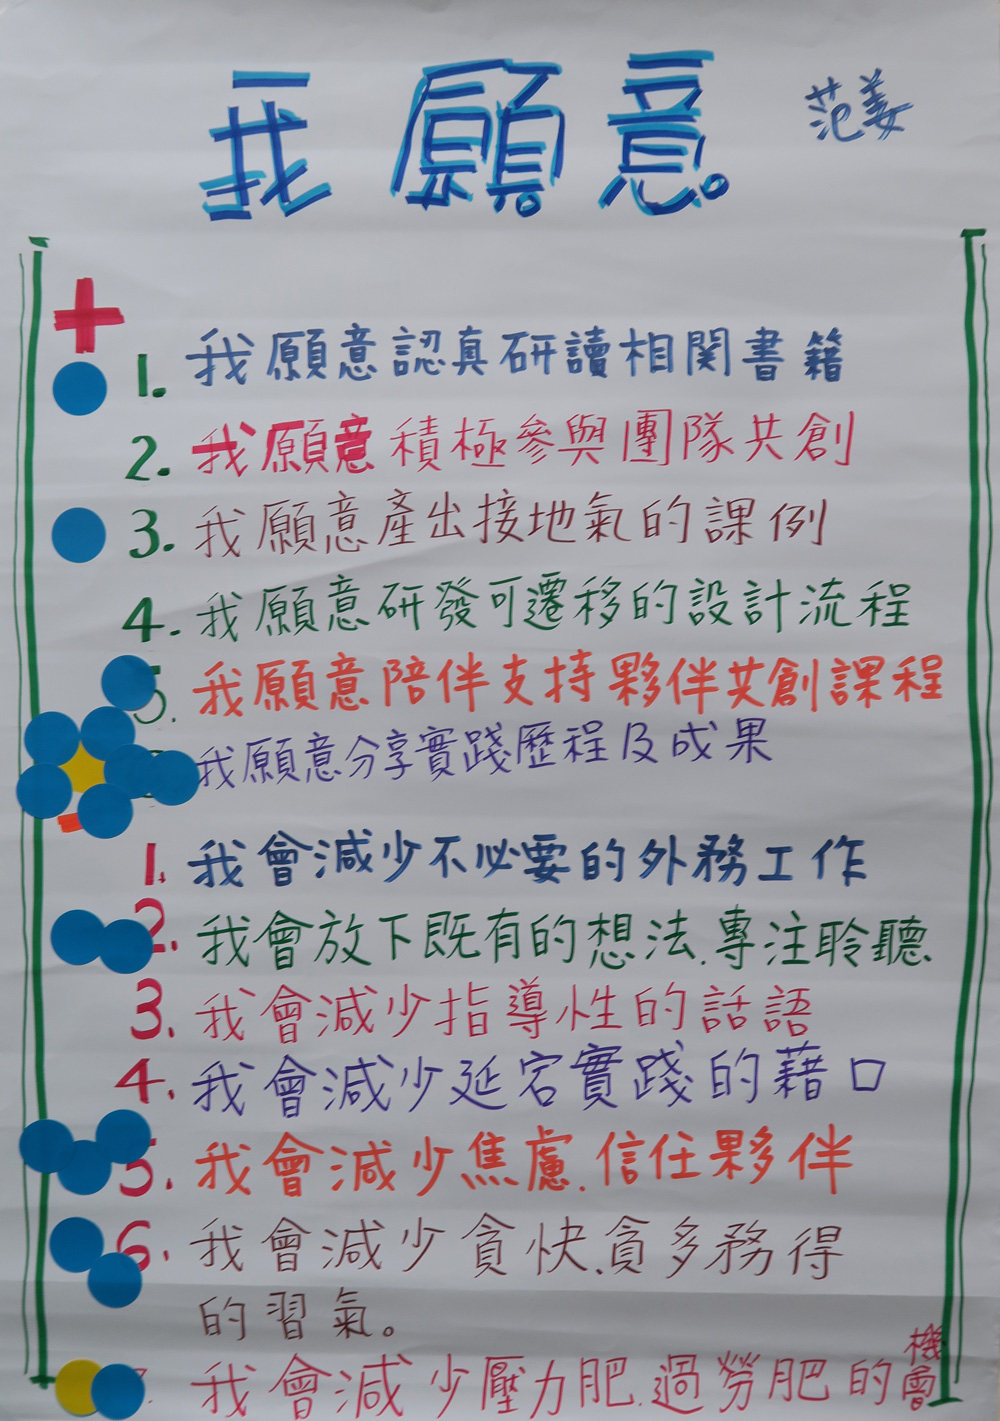 我願意。
范姜
+
1. 我願意認真研讀相關書籍
2. 我願意積極參與團隊共創
3. 我願意產出接地氣的課例
4. 我願意研發可遷移的設計流程
5. 我願意陪伴支持夥伴共創課程
我願意分享實踐歷程及成果
1. 我會減少不必要的外務工作
2. 我會放下既有的想法、專注聆聽
3. 我會減少指導性的話語
4. 我會減少延宕實踐的藉口
5. 我會減少焦慮、信任夥伴
6. 我會減少貪快、貪多務得
的習氣。
我會減少壓力肥、過勞肥的機會